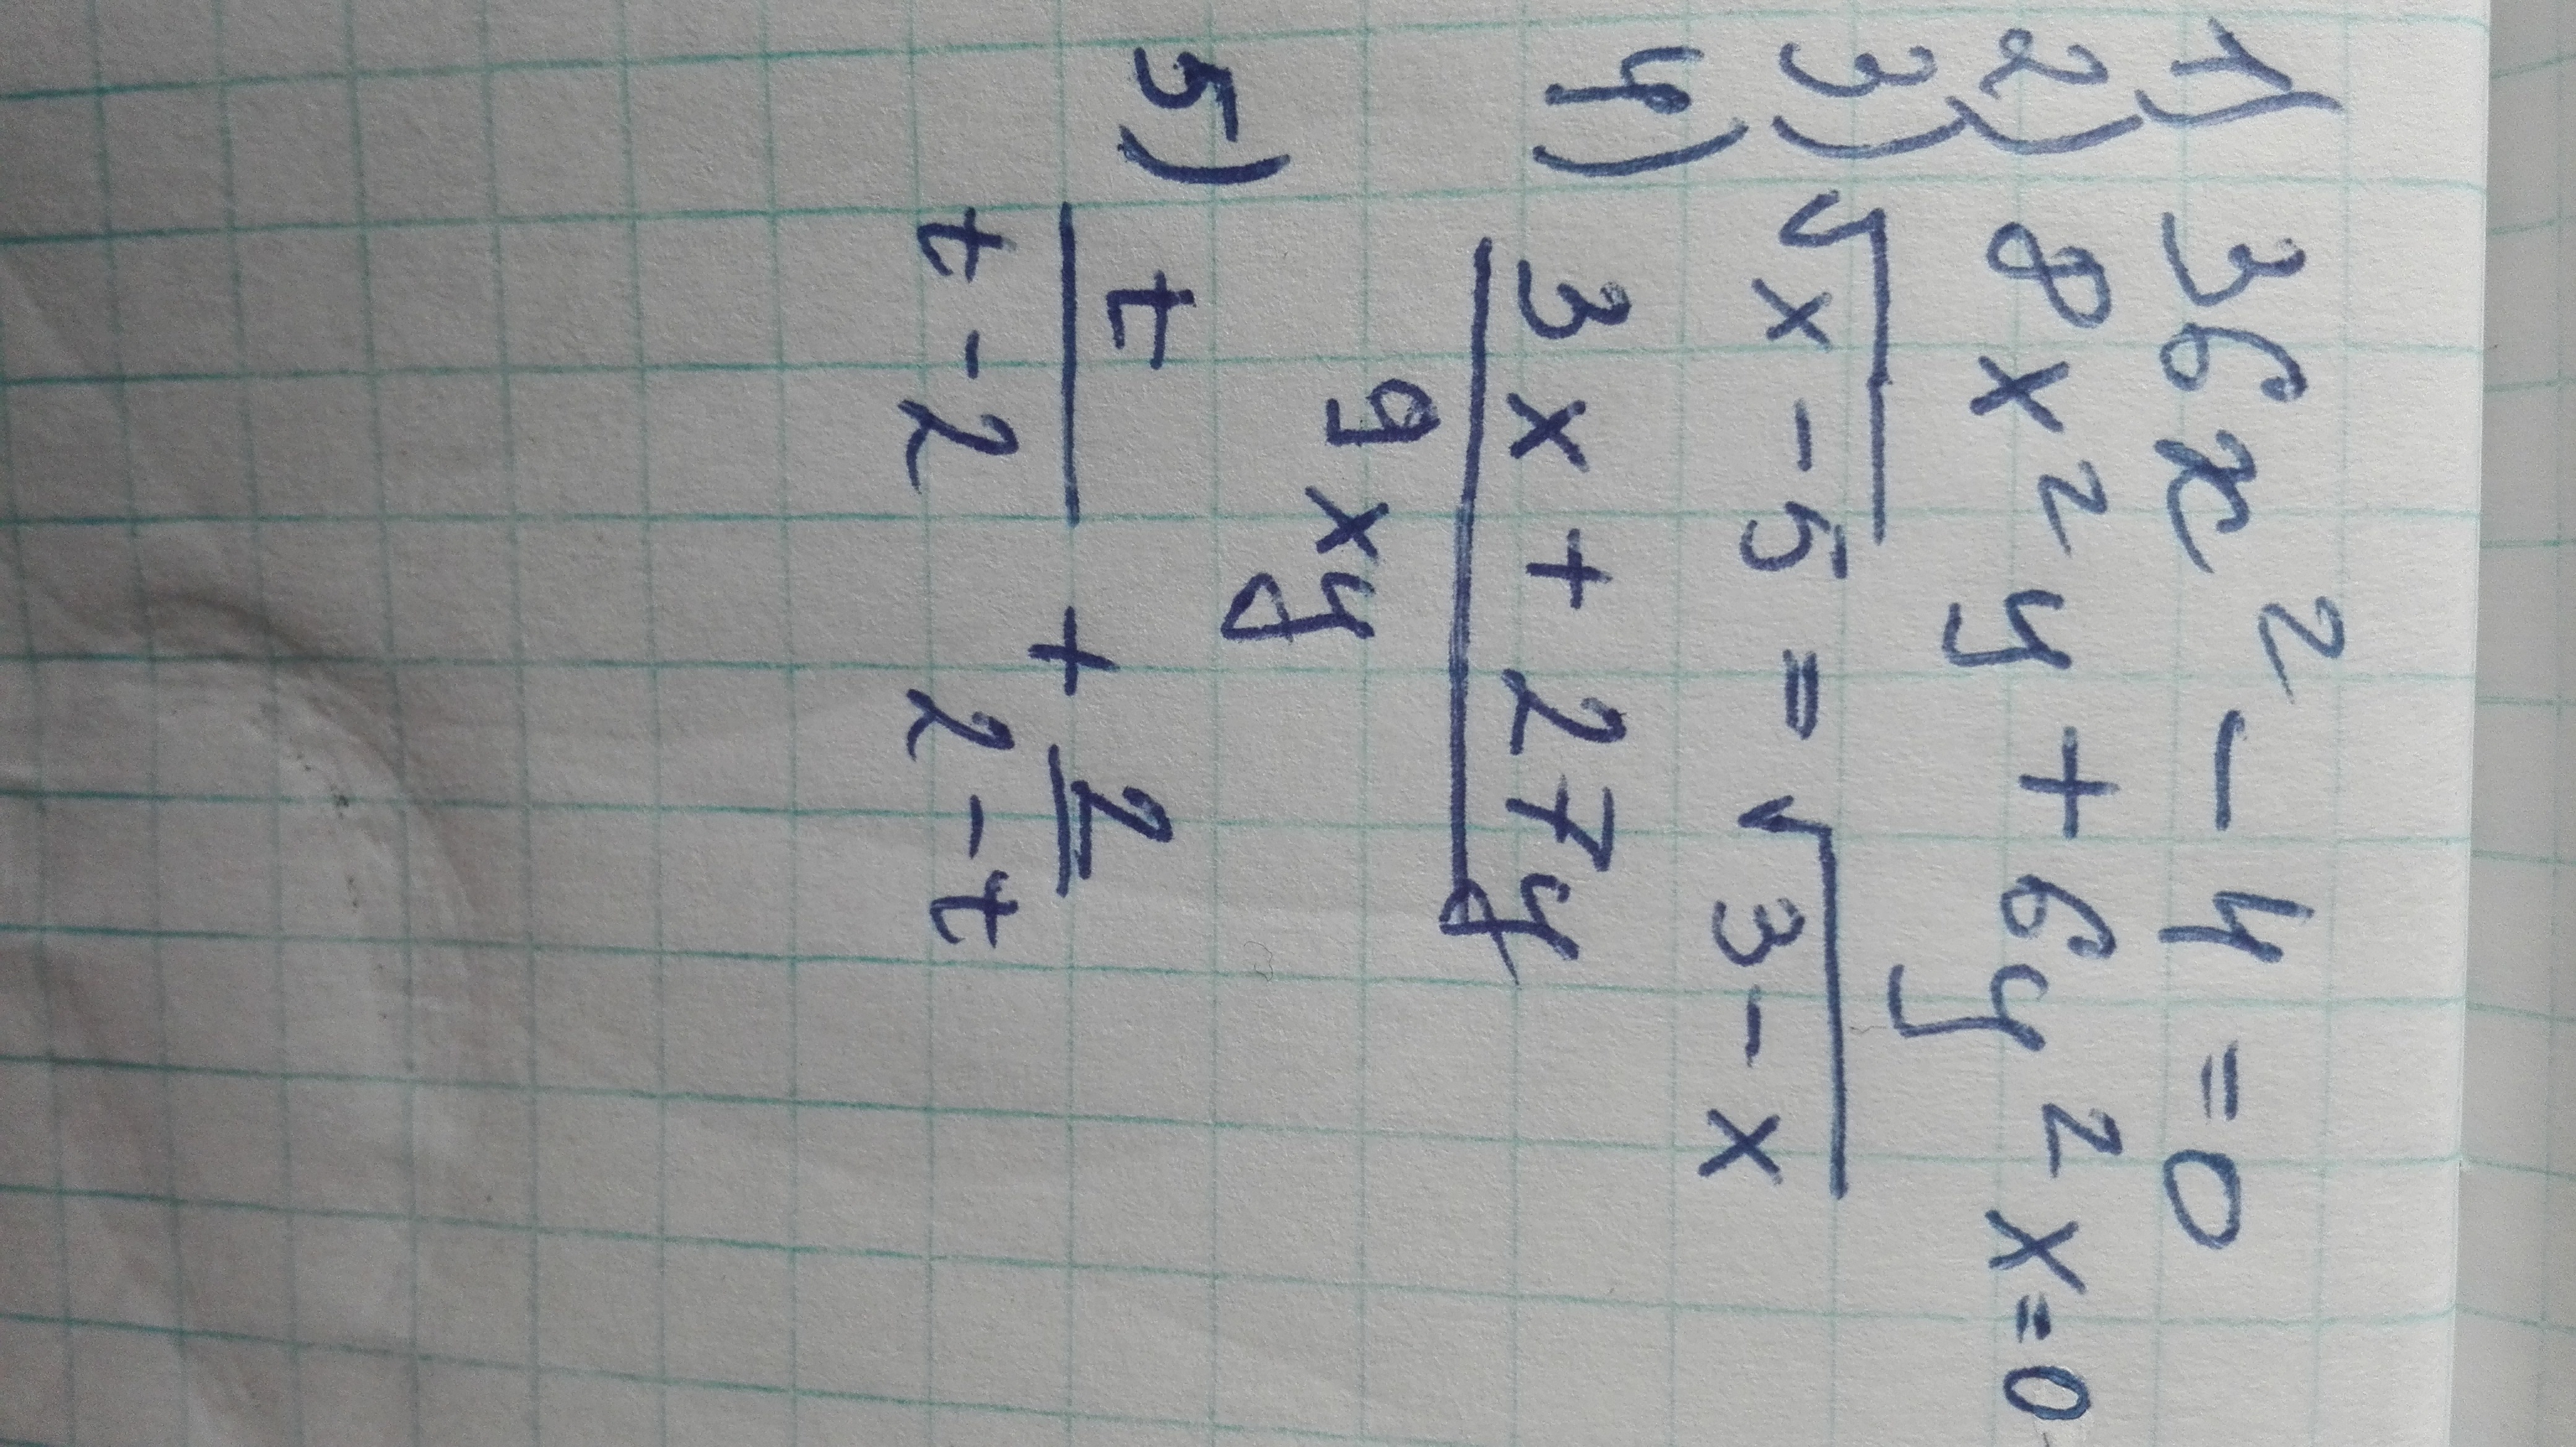 1) 36x² - 4 = 0
2) 8x²y + 6y²x = 0
3) √x - 5 = √3 - x
4) 3x + 27y
9xy
5) t + 2
t - 2 2 - t